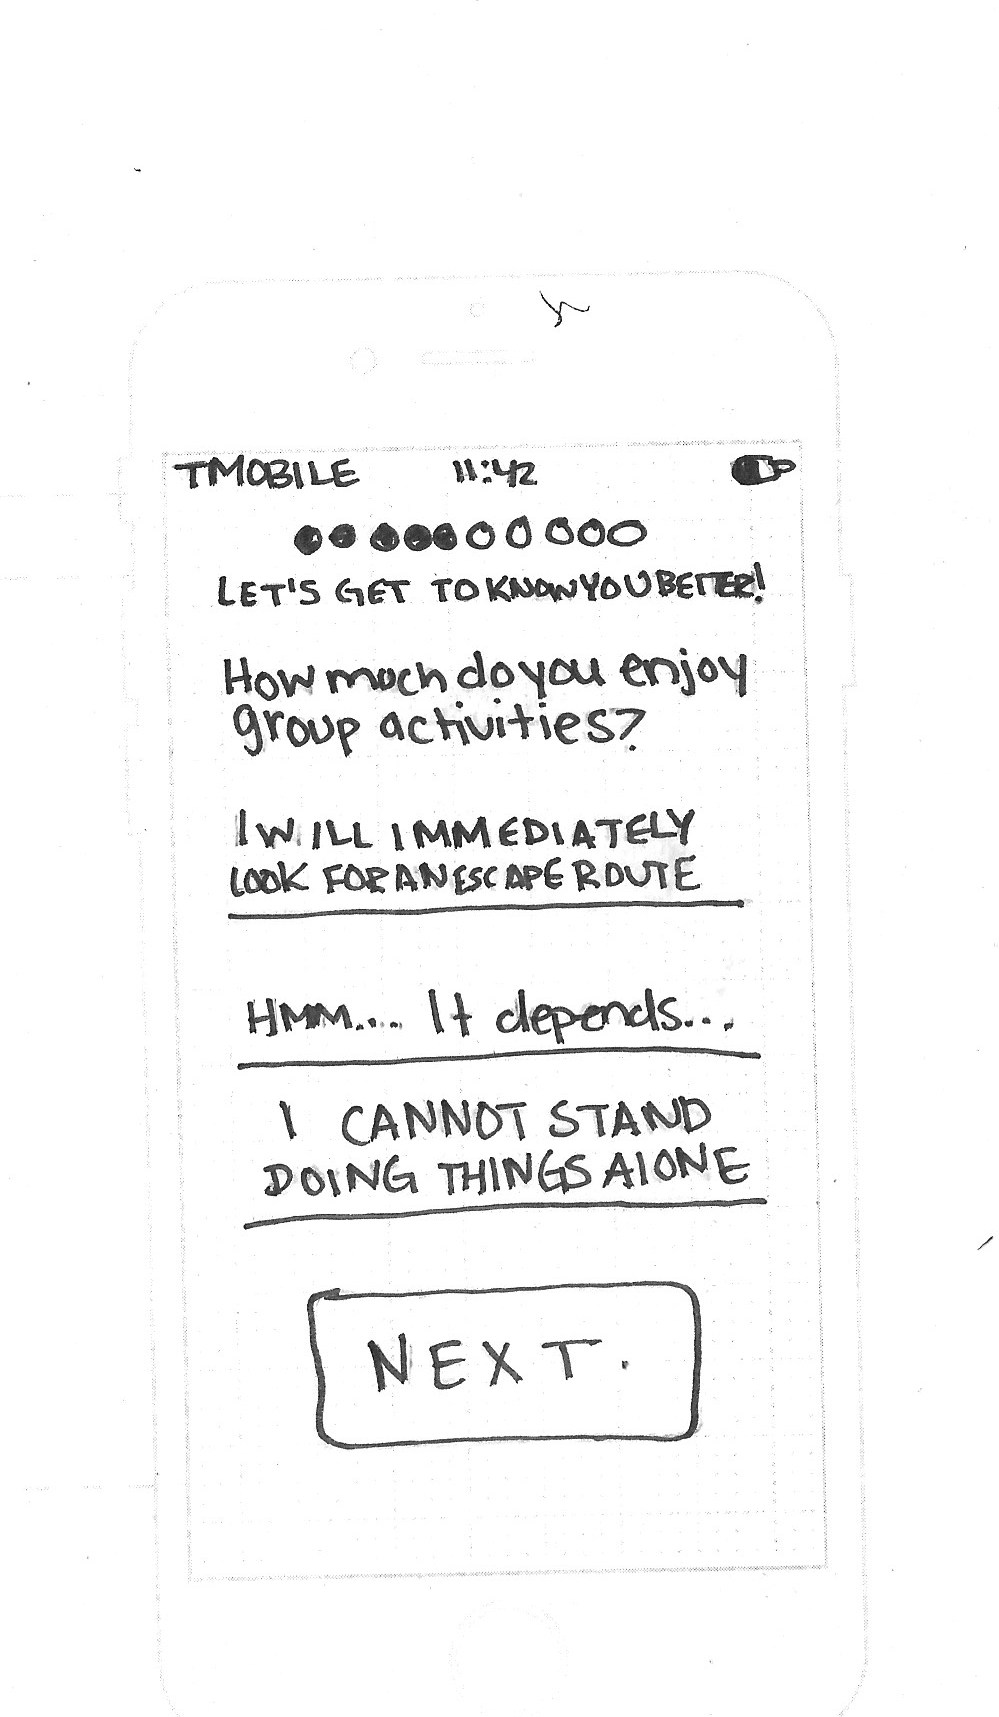 TMOBILE 11:42
LET'S GET TO KNOW YOU BETTER!
How much do you enjoy
group activities?
I WILL IMMEDIATELY
LOOK FOR AN ESCAPE ROUTE
HMM.... It depends...
I CANNOT STAND
DOING THINGS AlONE
NEXT.